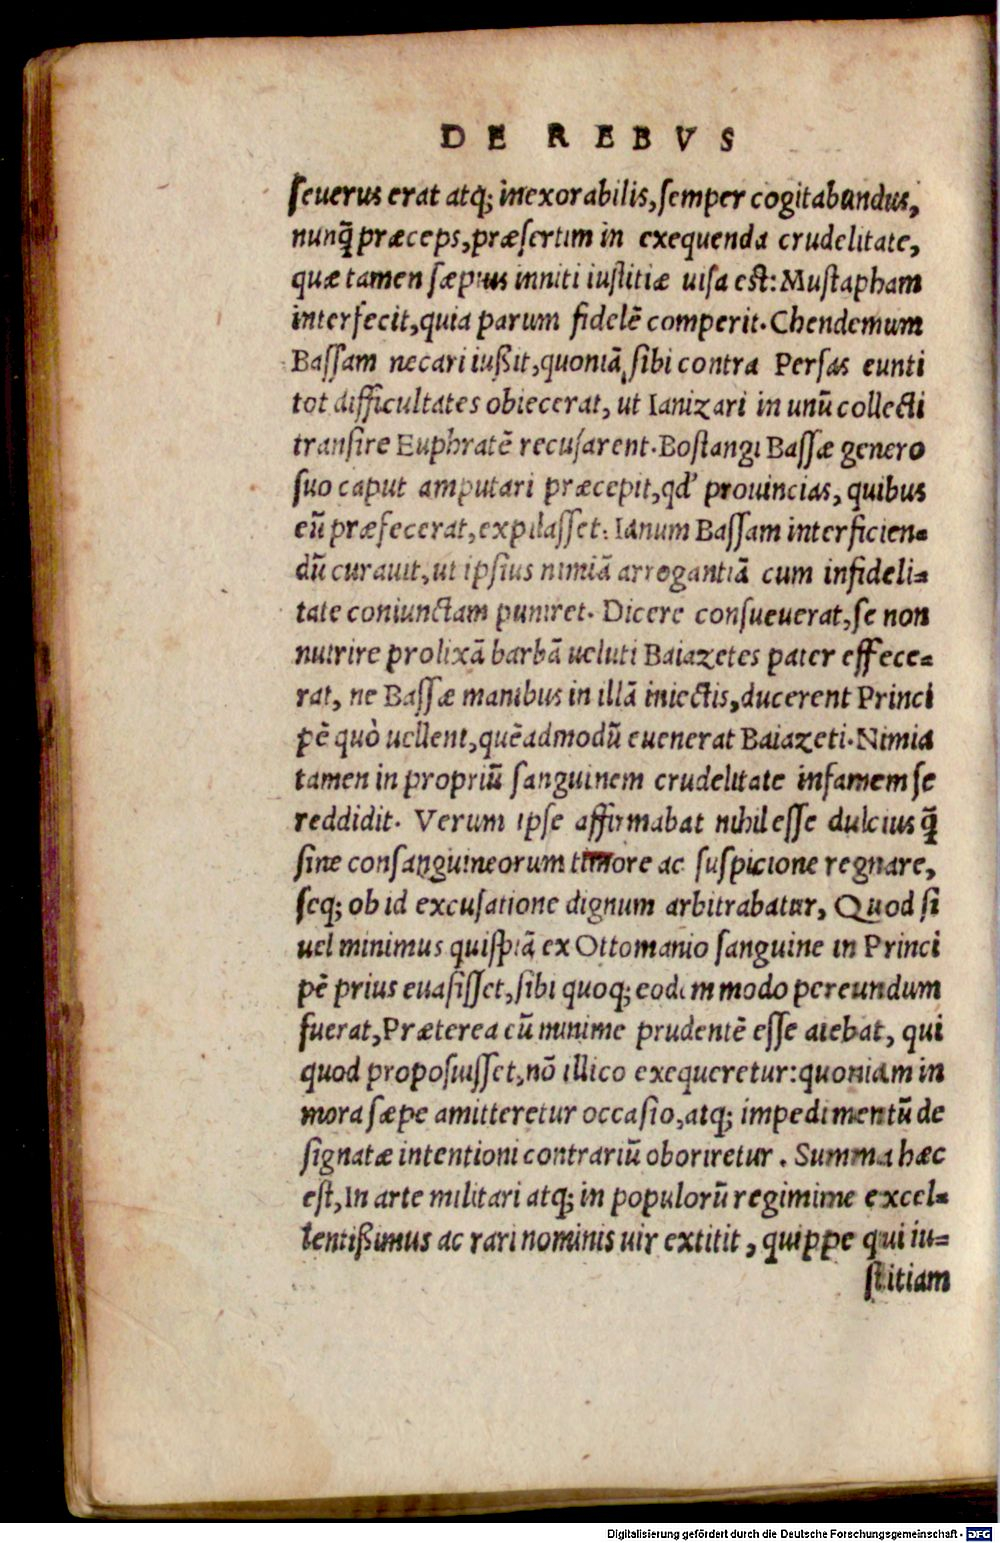 DE REBVS
ſeuerus erat atq; inexorabilis, ſemper cogitabundus,
nunq̃ præceps, præſertim in exequenda crudelitate,
quæ tamen ſæpius inniti iuſtitiæ uiſa eſt: Muſtapham
interfecit, quia parum fidelẽ comperit. Chendemum
Baſſam necari iußit, quoniã ſibi contra Perſas eunti
tot difficultates obiecerat, ut Ianizari in unũ collecti
tranſire Euphratẽ recuſarent. Boſtangi Baſſæ genero
ſuo caput amputari præcepit, qd' prouincias, quibus
eũ præfecerat, expilaſſet: Ianum Baſſam interficien-
dũ curauit, ut ipſius nimiã arrogantiã cum infideli-
tate coniunctam puniret. Dicere conſueuerat, ſe non
nutrire prolixã barbã ueluti Baiazetes pater effece-
rat, ne Baſſæ manibus in illã iniectis, ducerent Princi
pẽ quò uellent, quẽadmodũ euenerat Baiazeti. Nimia
tamen in propriũ ſanguinem crudelitate infamem ſe
reddidit. Verum ipſe affirmabat nihil eſſe dulcius q̃
ſine conſanguineorum timore ac ſuſpicione regnare,
ſeq; ob id excuſatione dignum arbitrabatur, Quod ſi
uel minimus quiſpiã ex Ottomanio ſanguine in Princi
pẽ prius euaſiſſet, ſibi quoq; eodem modo pereundum
fuerat, Præterea eũ minime prudentẽ eſſe aiebat, qui
quod propoſuiſſet, nõ illico exequeretur: quoniam in
mora ſæpe amitteretur occaſio, atq; impedimentũ de
ſignatæ intentioni contrariũ oboriretur. Summa hæc
eſt, In arte militari atq; in populorũ regimime excel-
lentißimus ac rari nominis uir extitit, quippe qui iu-
ſtitiam
Digitalisierung gefördert durch die Deutsche Forschungsgemeinschaft - DFG